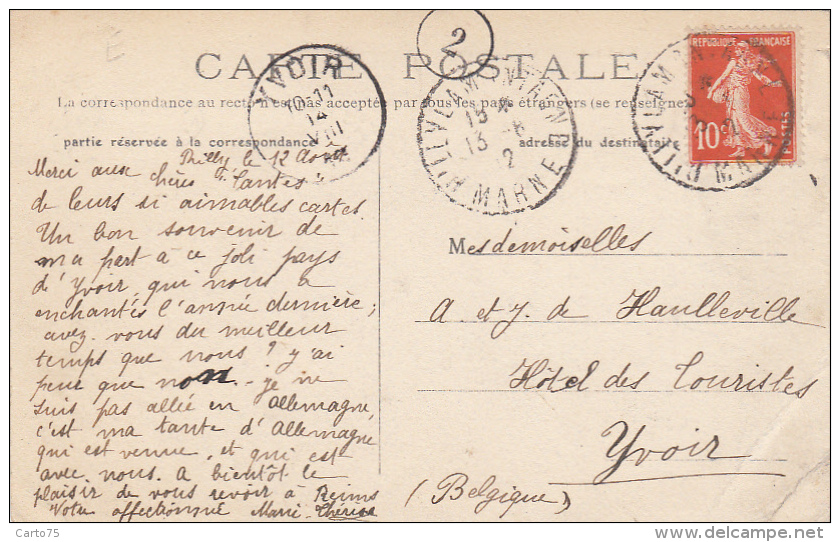 2
CARTE POSTALE
La correspondance au recto n'est pas acceptée par tous les pays étrangers (se renseigner
partie réservée à la correspondance
adresse du destinataire
YVOIR
10-11
14
VIII
MARNE
RÉPUBLIQUE FRANÇAISE
10
POSTES
le 12 Août
Merci aux chères Tantes
de leurs si aimables cartes.
Un bon souvenir de
ma part à ce joli pays
d'Yvoir, qui nous a
enchantés l'année dernière;
avez-vous du meilleur
temps que nous? j'ai
peur que non. je ne
suis pas allée en Allemagne,
c'est ma tante d'Allemagne
qui est venue, et qui est
avec nous. A bientôt le
plaisir de vous revoir à Reims
Votre affectionnée Marie-Thérèse
Mesdemoiselles
A et J. de Haulleville
Hôtel des Touristes
Yvoir
(Belgique)
Carto75
www.delcampe.net